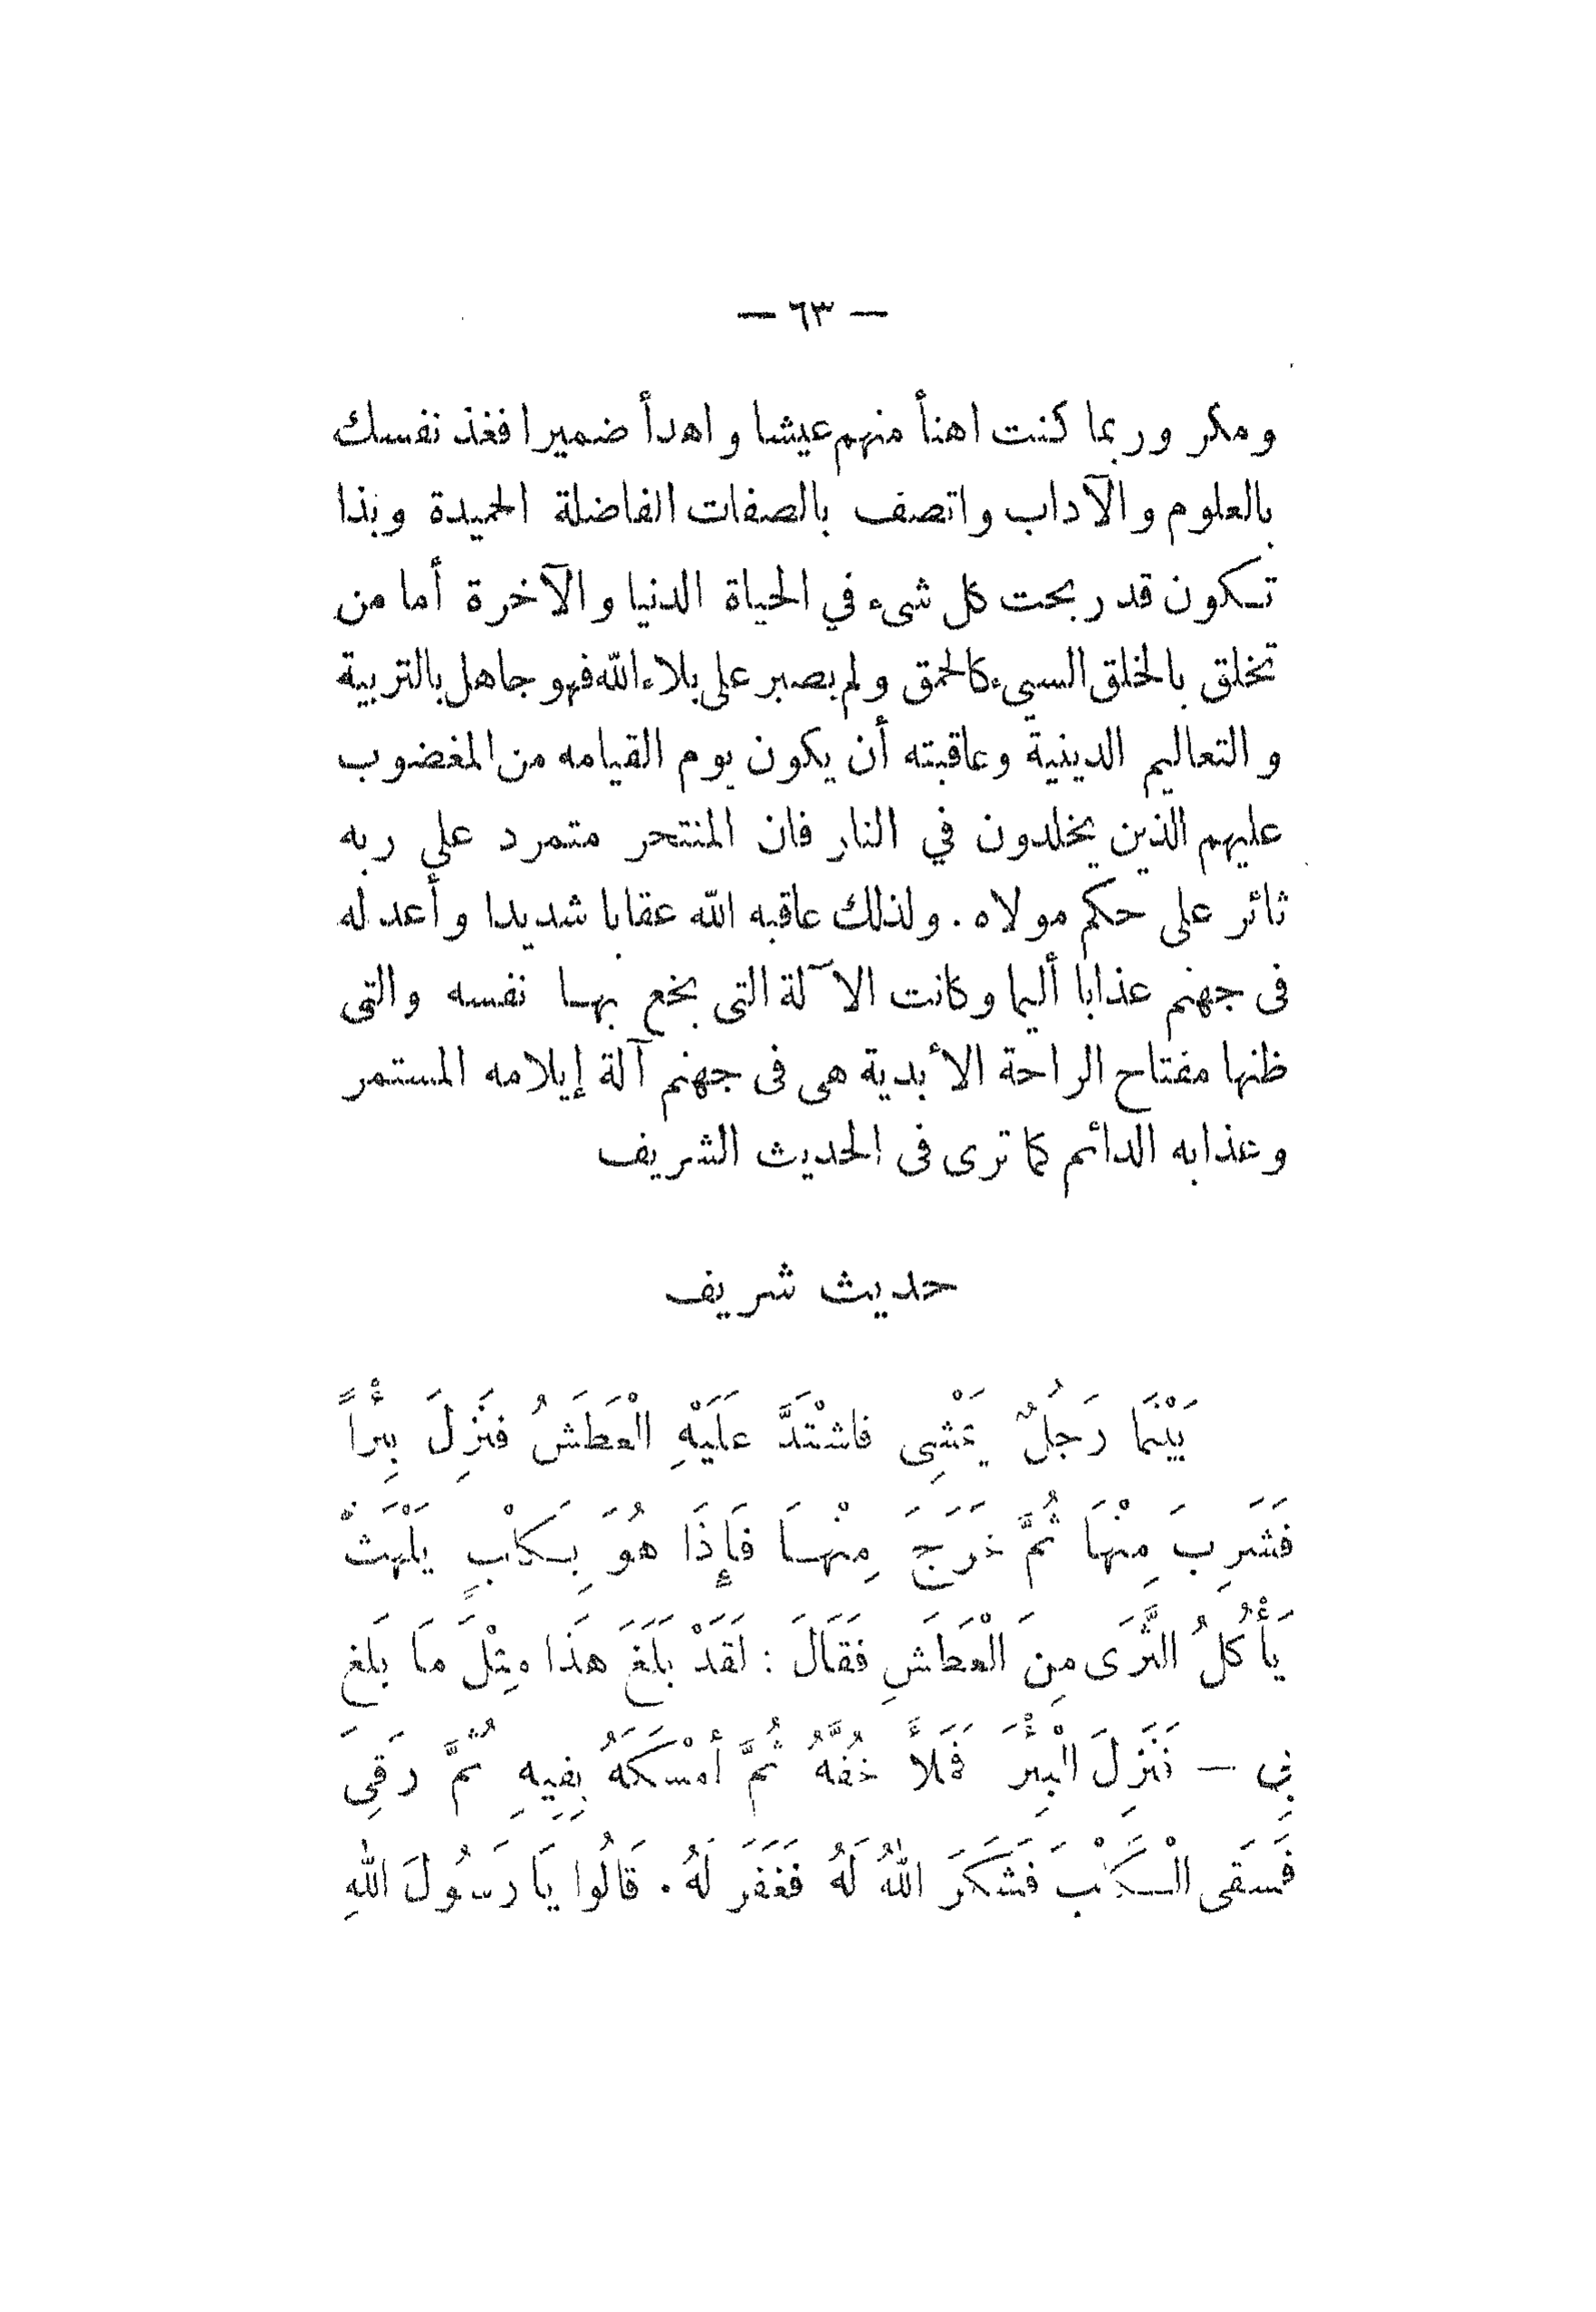 — ٦٣ —
ومكر وربما كنت اهنأ منهم عيشا واهدأ ضميرا فغذ نفسك
بالعلوم والآداب واتصف بالصفات الفاضلة الحميدة وبذا
تكون قد ربحت كل شىء في الحياة الدنيا والآخرة أما من
تخلق بالخلق السيىء كالحمق ولم يصبر على بلاء الله فهو جاهل بالتربية
والتعاليم الدينية وعاقبته أن يكون يوم القيامه من المغضوب
عليهم الذين يخلدون في النار فان المنتحر متمرد على ربه
ثائر على حكم مولاه . ولذلك عاقبه الله عقابا شديدا وأعد له
فى جهنم عذابا أليما وكانت الآلة التى بخع بها نفسه والتى
ظنها مفتاح الراحة الأبدية هى فى جهنم آلة إيلامه المستمر
وعذابه الدائم كما ترى فى الحديث الشريف
حديث شريف
بَيْنَمَا رَجُلٌ يَمْشِى فاشْتَدَّ عَلَيْهِ الْعَطَشُ فَنَزِلَ بِئْراً
فَشَرِبَ مِنْهَا ثُمَّ خَرَجَ مِنْهَا فَإِذَا هُوَ بِكَلْبٍ يَلْهَثْ
يَأْكُلُ الثَّرَى مِنَ الْعَطَشِ فَقَالَ : لَقَدْ بَلَغَ هَذَا مِثْلَ مَا بَلغ
بِى – فَنَزِلَ الْبِئْرَ فَمَلَأَ خُفَّهُ ثُمَّ أَمْسَكَهُ بِفِيهِ ثُمَّ رَقِىَ
فَسَقَى الْكَلْبَ فَشَكَرَ اللهُ لَهُ فَغَفَرَ لَهُ . قَالُوا يَا رَسُولَ اللهِ